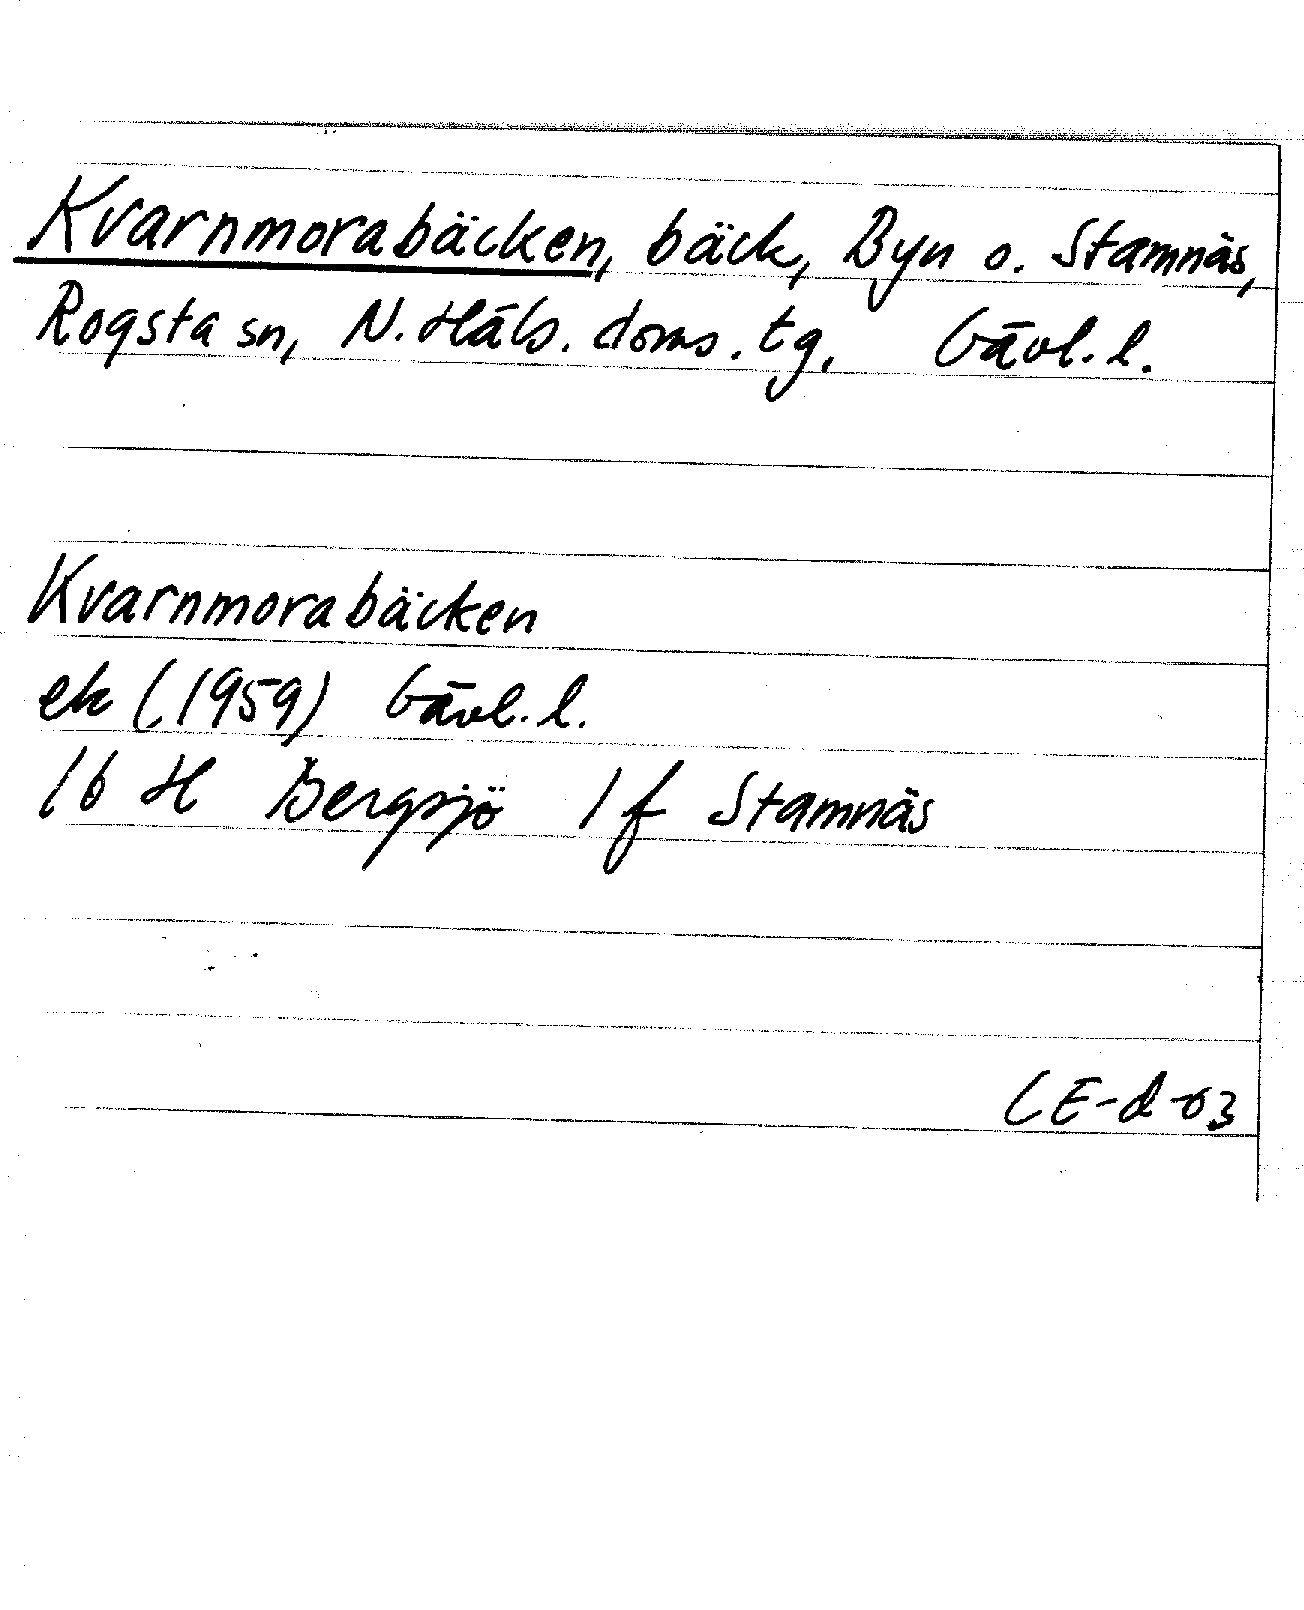 Kvarnmorabäcken, bäck, Byn o. Stamnäs,
Rogsta sn, N. Häls. doms. tg, Gävl. l.
Kvarnmorabäcken
ek (1959) Gävl. l.
16 H Bergsjö 1 f Stamnäs
CE-d-03